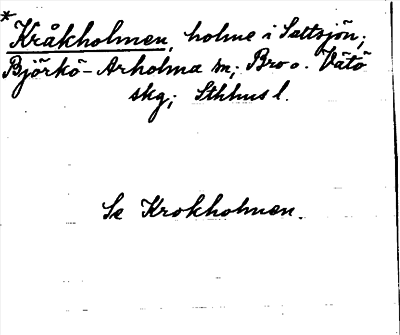 *
Kråkholmen, holme i Saltsjön;
Björkö-Arholma sn; Bro o. Vätö
skg; Sthlms l.
Se Krokholmen.